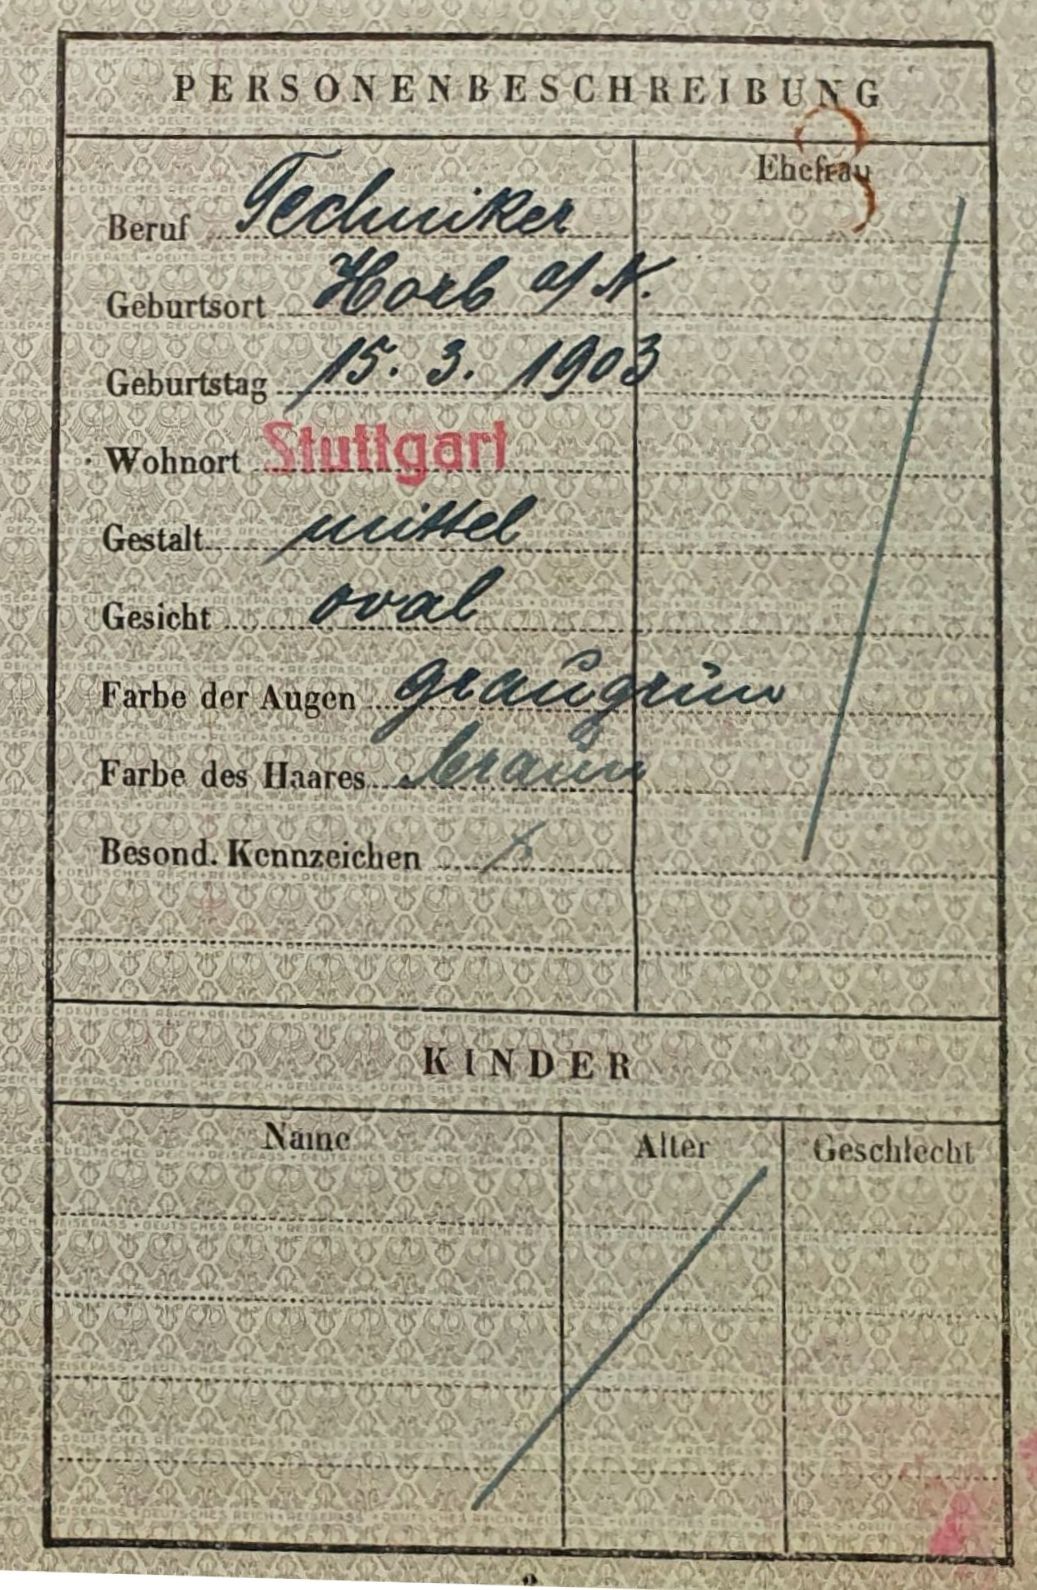 PERSONENBESCHREIBUNG
Ehefrau
Beruf Techniker
Geburtsort Horb a/N.
Geburtstag 15. 3. 1903
Wohnort Stuttgart
Gestalt mittel
Gesicht oval
Farbe der Augen graugrün
Farbe des Haares braun
Besond. Kennzeichen
KINDER
Name Alter Geschlecht